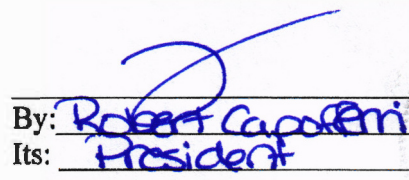 By: Robert Capoferri
Its: President